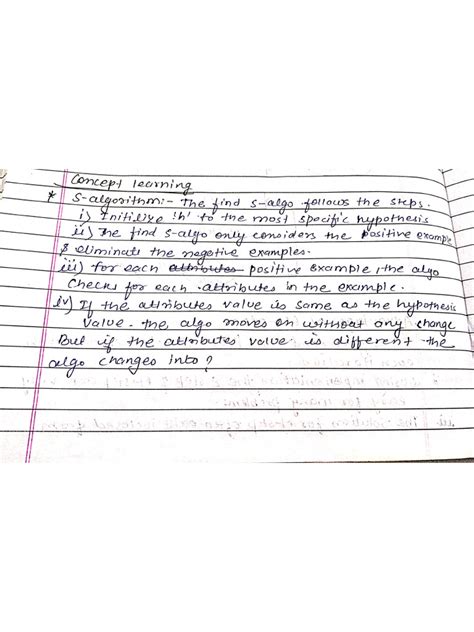 Concept learning
* S-algorithm:- The find S-algo follows the steps.
i) Initilize 'h' to the most specific hypothesis
ii) The find S-algo only considers the positive example
& eliminate the negative examples.
iii) for each attributes positive example, the algo
Checks for each attributes in the example.
iv) If the attributes value is same as the hypothesis
value. the, algo moves on without any change
But if the attributes value is different the
algo changes into ?